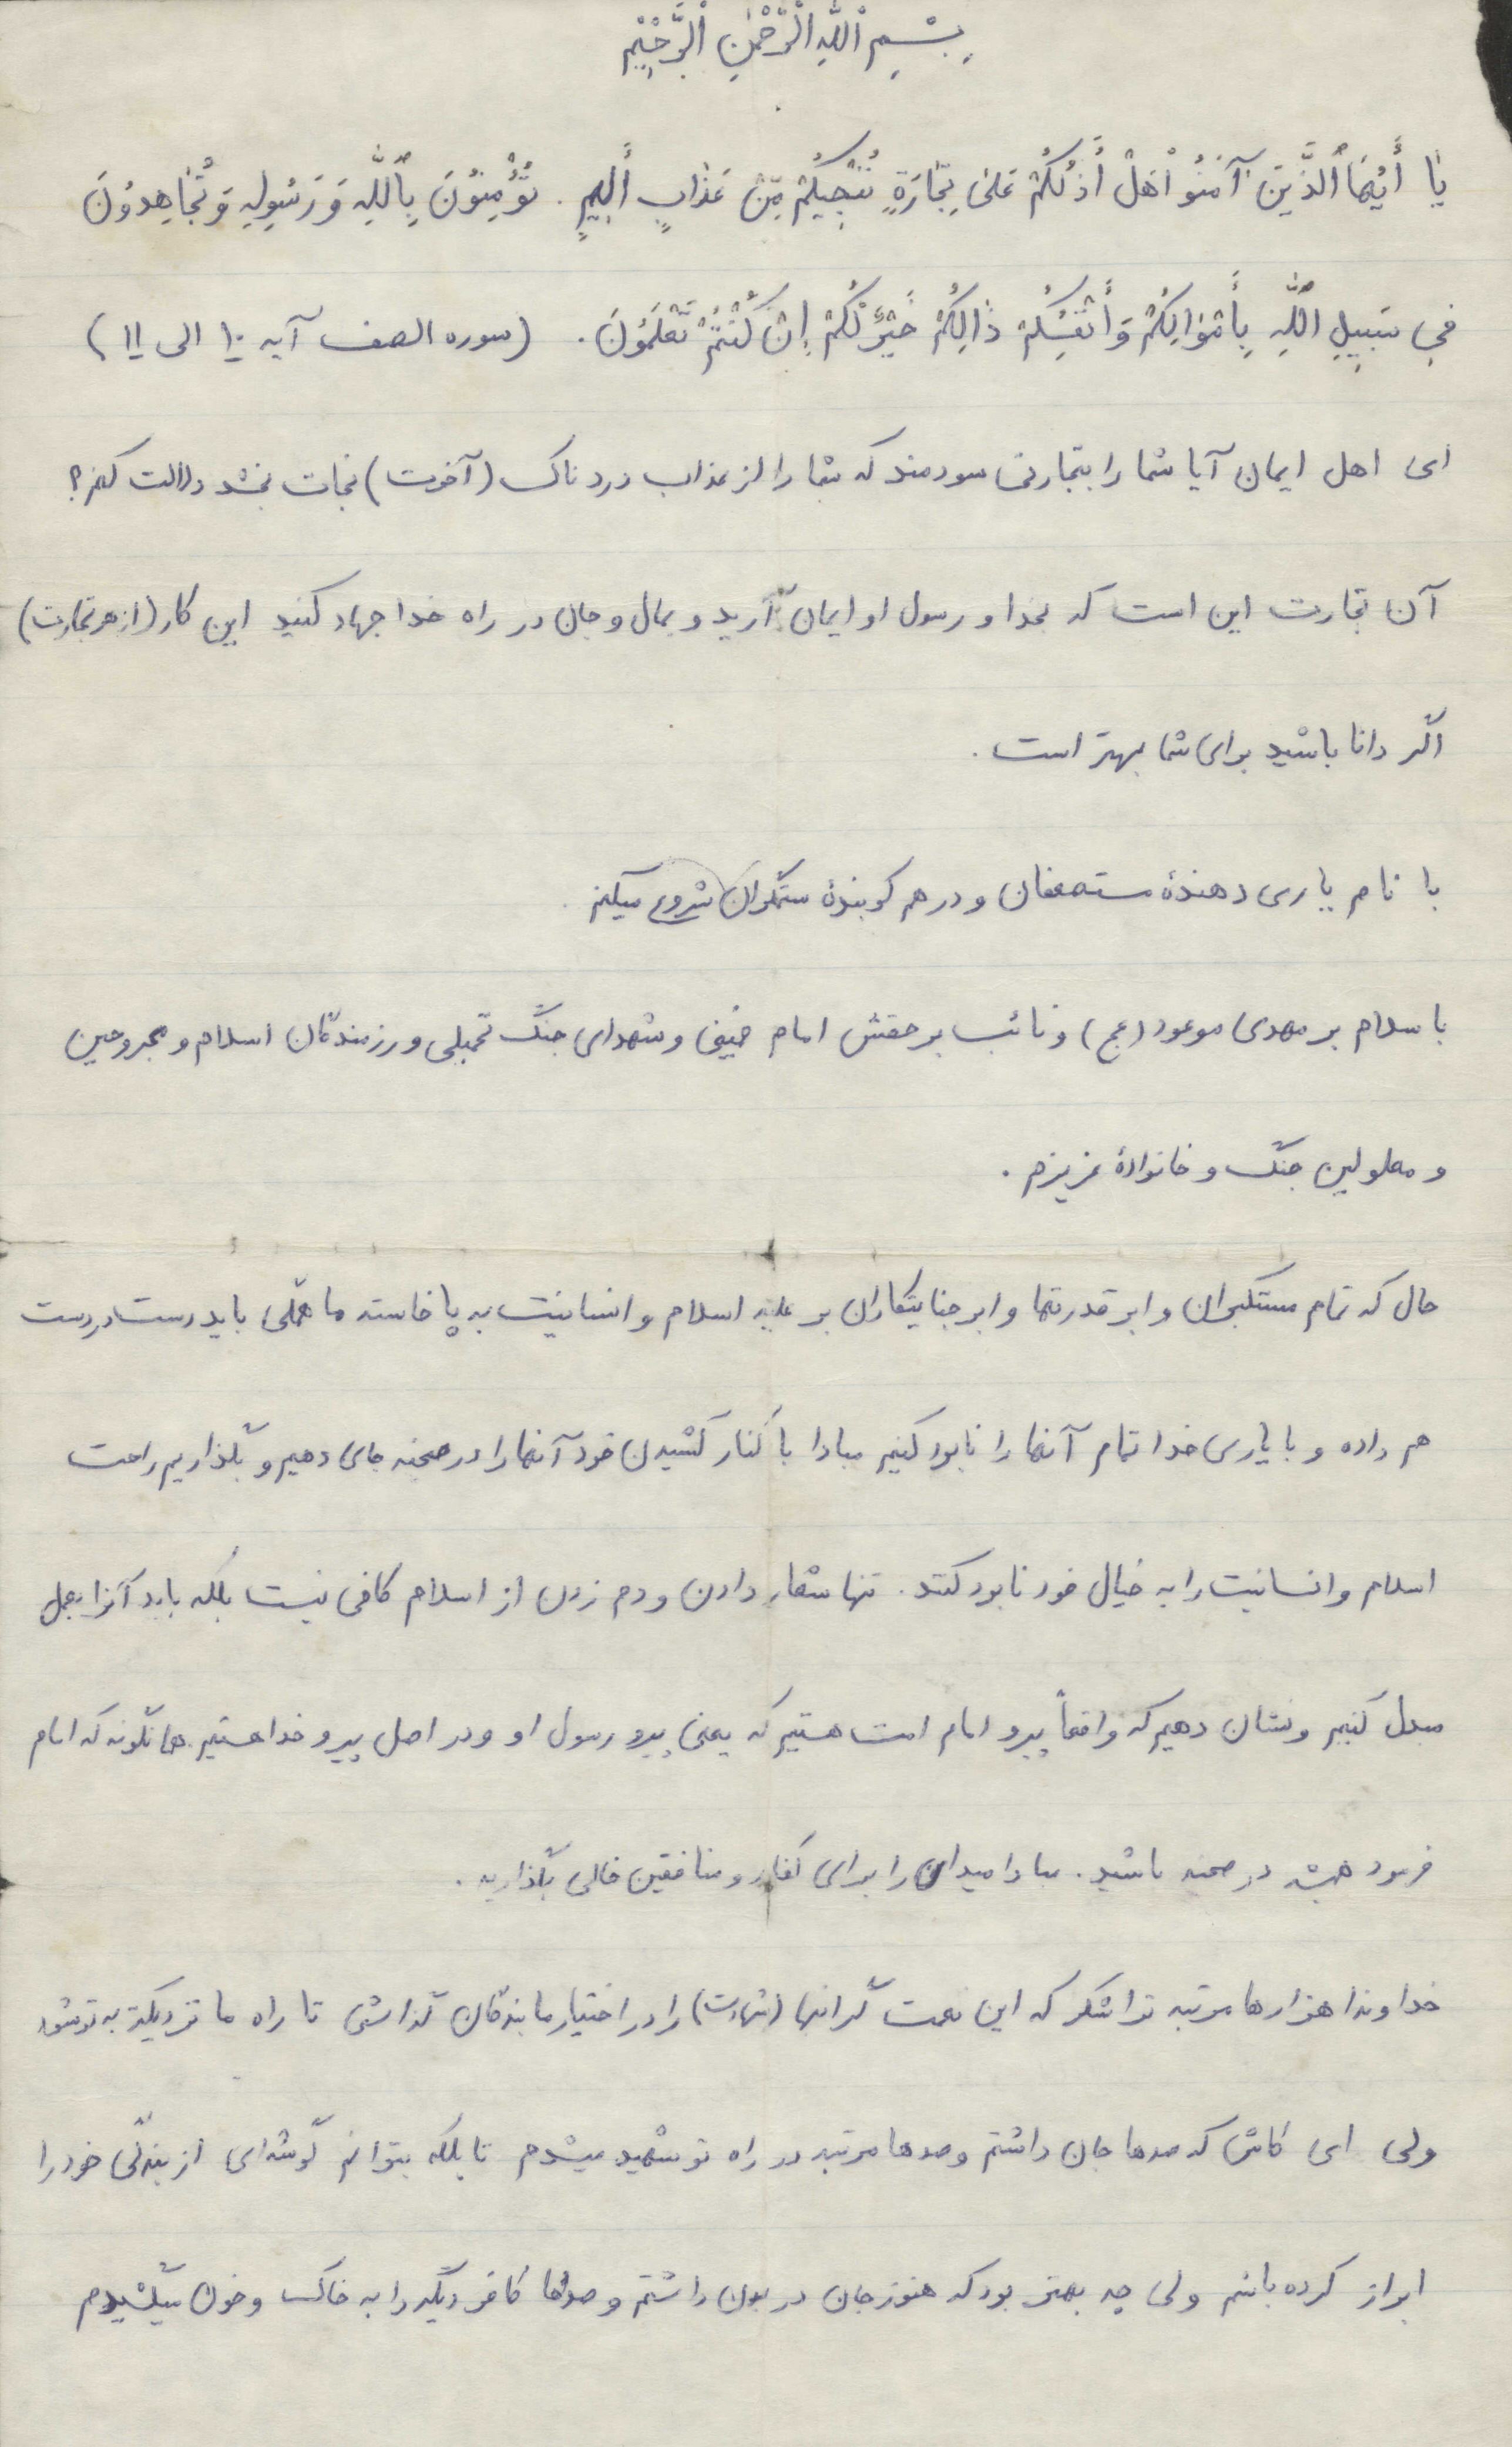 بِسْمِ ٱللَّهِ ٱلرَّحْمٰنِ ٱلرَّحِيْمِ
يَا أَيُّهَا ٱلَّذِّينَ آمَنُوْا هَلْ أَدُلُكُمْ عَلىٰ تِجٰارَةٍ تُنْجِيكُمْ مِّنْ عَذٰابٍ أَلِيمٍ . تُؤْمِنُونَ بِٱللَّهِ وَ رَسُولِهِ وَ تُجٰاهِدوُنَ
فِى سَبِيلِ ٱللَّهِ بِأَمْوٰالِكُمْ وَ أَنْفُسِكُمْ ذٰالِكُمْ خَيْرٌ لَكُمْ إِنْ كُنْتُمْ تَعْلَمُونَ . (سوره الصف آیه ۱۰ الی ۱۱)
ای اهل ایمان آیا شما را بتجارتی سودمند که شما را از عذاب دردناک (آخرت) نجات بخشد دلالت کنم؟
آن تجارت این است که بخدا و رسول او ایمان آرید و بمال و جان در راه خدا جهاد کنید این کار (از هر تجارت)
اگر دانا باشید برای شما بهتر است .
با نام یاری دهندهٔ مستضعفان و در هم کوبندهٔ ستمگران شروع میکنم .
با سلام بر مهدی موعود (عج) و نائب بر حقش امام خمینی و شهدای جنگ تحمیلی و رزمندگان اسلام و مجروحین
و معلولین جنگ و خانوادهٔ عزیزم .
حال که تمام مستکبران و ابر قدرتها و ابر جنایتکاران بر علیه اسلام و انسانیت به پا خاسته ما همگی باید دست در دست
هم داده و با یاری خدا تمام آنها را نابود کنیم مبادا با کنار کشیدن خود آنها را در صحنه جای دهیم و بگذاریم راحت
اسلام و انسانیت را به خیال خود نابود کنند . تنها شعار دادن و دم زدن از اسلام کافی نیست بلکه باید آنرا بعمل
مبدل کنیم و نشان دهیم که واقعاً پیرو امام امت هستیم که یعنی پیرو رسول او و در اصل پیرو خدا هستیم . همانگونه که امام
فرمود همیشه در صحنه باشید . مبادا میدان را برای کفار و منافقین خالی بگذارید .
خداوندا هزارها مرتبه ترا شکر که این نعمت گرانبها (شهادت) را در اختیار ما بندگان گذاشتی تا راه ما نزدیکتر به تو شود
ولی ای کاش که صدها جان داشتم و صدها مرتبه در راه تو شهید میشدم تا بلکه بتوانم گوشه‌ای از بندگی خود را
ابراز کرده باشم ولی چه بهتر بود که هنوز جان در بدن داشتم و صدها کافر دیگر را به خاک و خون میکشیدم